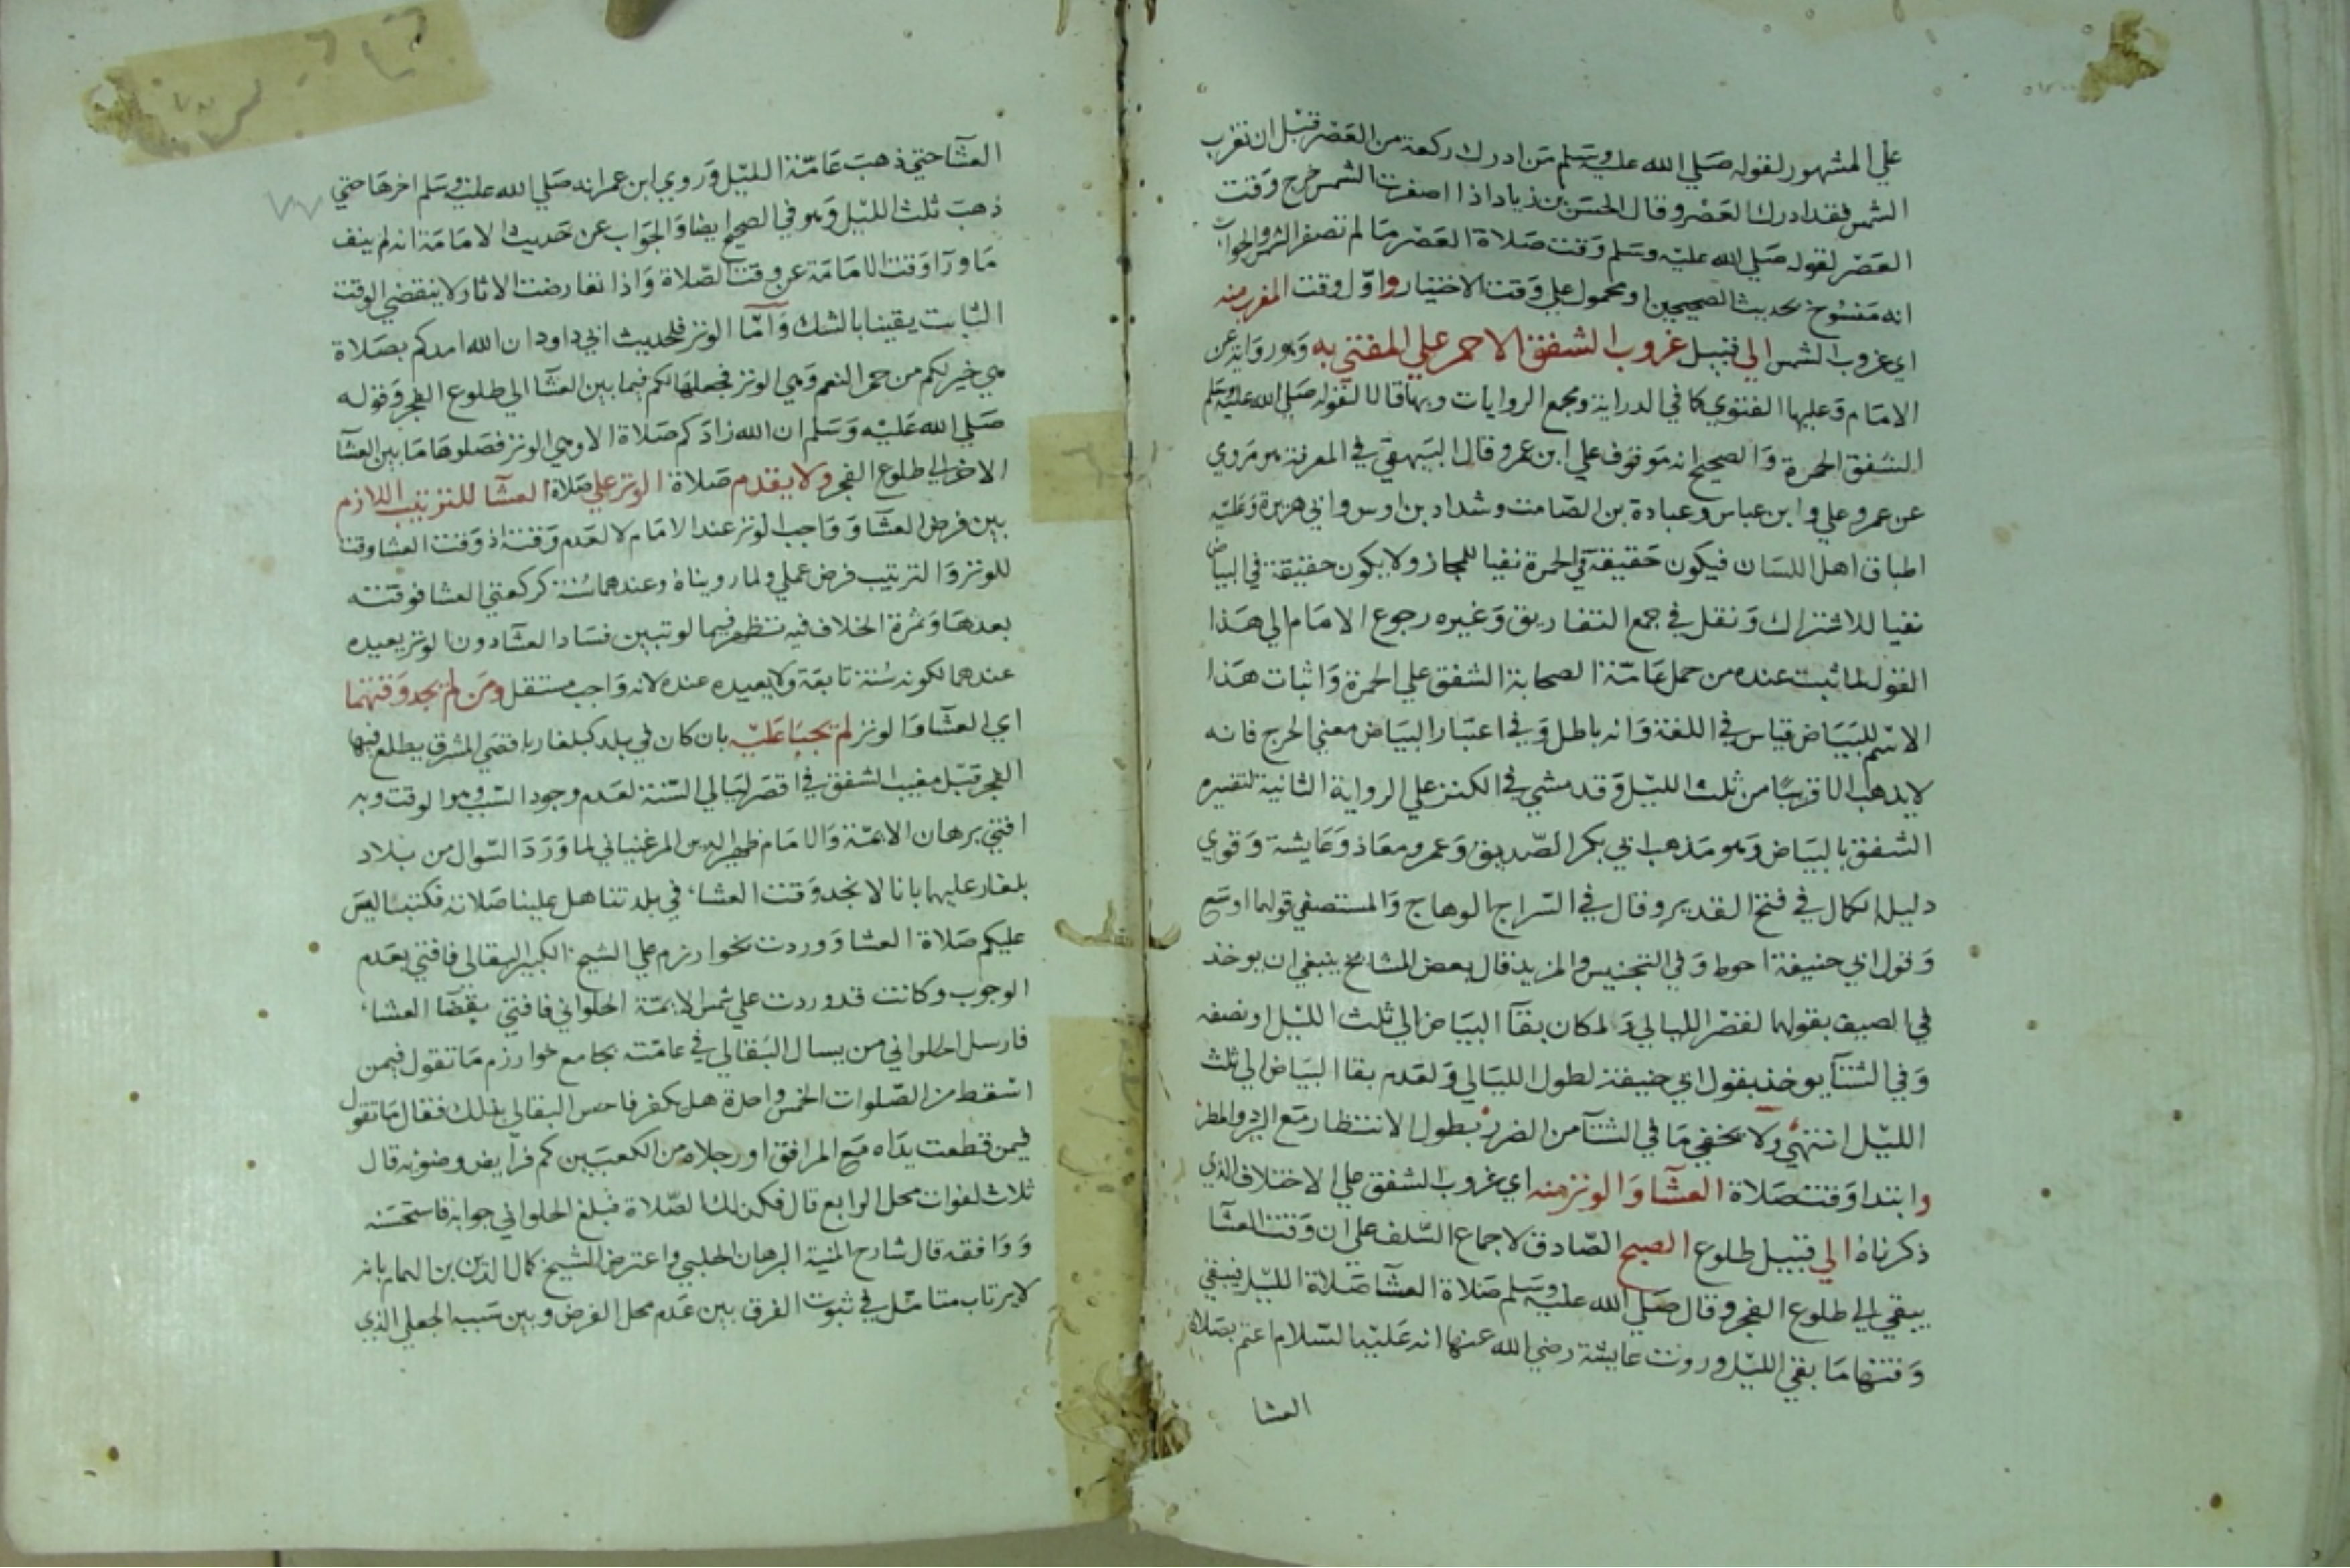 علي المشهور لقوله صلي الله عليه وسلم من ادرك ركعة من العصر قبل ان تغرب
الشمس فقد ادرك العصر وقال الحسن بن زياد اذا اصفرت الشمس خرج وقت
العصر لقوله صلي الله عليه وسلم وقت صلاة العصر ما لم تصفر الشمس والجواب
انه منسوخ بحديث الصحيحين او محمول علي وقت الاختيار واول وقت المغرب منه
اي غروب الشمس الي قبيل غروب الشفق الاحمر علي المفتي به وهو رواية عن
الامام وعليها الفتوي كما في الدراية ومجمع الروايات وبها قالا لقوله صلي الله عليه وسلم
الشفق الحمرة والصحيح انه موقوف علي ابن عمر وقال البيهقي في المعرفة هو مروي
عن عمر وعلي وابن عباس وعبادة بن الصامت وشداد بن اوس وابي هريرة وعليه
اطباق اهل اللسان فيكون حقيقة في الحمرة نفيا للمجاز ولا يكون حقيقة في البياض
نفيا للاشتراك ونقل في جمع التفاريق وغيره رجوع الامام الي هذا
القول لما ثبت عنده من حمل عامة الصحابة الشفق علي الحمرة واثبات هذا
الاسم للبياض قياس في اللغة وانه باطل وفي اعتبار البياض معني الحرج فانه
لا يذهب الا قريبا من ثلث الليل وقد مشي في الكنز علي الرواية الثانية لتفسيره
الشفق بالبياض وهو مذهب ابي بكر الصديق وعمر ومعاذ وعايشة وقوي
دليله الكمال في فتح القدير وقال في السراج الوهاج والمستصفي قولهما اوسع
وقول ابي حنيفة احوط وفي التجنيس والمزيد قال بعض المشايخ ينبغي ان يوخذ
في الصيف بقولهما لقصر الليالي ولمكان بقآ البياض الي ثلث الليل او نصفه
وفي الشتآ يوخذ بقول ابي حنيفة لطول الليالي ولعدم بقا البياض الي ثلث
الليل انتهي ولا يخفي ما في الشتآ من الضرر بطول الانتظار مع البرد والمطر
وابتدا وقت صلاة العشآ والوتر منه اي غروب الشفق علي الاختلاف الذي
ذكرناه الي قبيل طلوع الصبح الصادق لاجماع السلف علي ان وقت العشآ
يبقي الي طلوع الفجر وقال صلي الله عليه وسلم صلاة العشآ صلاة الليل فيبقي
وقتها ما بقي الليل وروت عايشة رضي الله عنها انه عليه السلام اعتم بصلاة
العشا
العشآ حتي ذهب عامة الليل وروي ابن عمر انه صلي الله عليه وسلم اخرها حتي
ذهب ثلث الليل وهو في الصحيح ايضا والجواب عن حديث الامامة انه لم ينف
ما ورآ وقت الامامة عن وقت الصلاة واذا تعارضت الاثار لا ينقضي الوقت
الثابت يقينا بالشك وآما الوتر فلحديث ابي داود ان الله امدكم بصلاة
هي خير لكم من حمر النعم وهي الوتر فجعلها لكم فيما بين العشآ الي طلوع الفجر وقوله
صلي الله عليه وسلم ان الله زادكم صلاة الا وهي الوتر فصلوها ما بين العشآ
الاخر الي طلوع الفجر ولا يقدم صلاة الوتر علي صلاة العشآ للترتيب اللازم
بين فرض العشآ وواجب الوتر عند الامام لا لعدم وقته اذ وقت العشا وقت
للوتر والترتيب فرض عملي ولما رويناه وعندهما سنة كركعتي العشا فوقته
بعدها وثمرة الخلاف فيه تظهر فيما لو تبين فساد العشآ دون الوتر يعيده
عندهما لكونه سنة تابعة ولا يعيده عنده لانه واجب مستقل ومن لم يجد وقتهما
اي العشآ والوتر لم يجبا عليه بان كان في بلد كبلغار باقصي المشرق يطلع فيها
الفجر قبل مغيب الشفق في اقصر ليالي السنة لعدم وجود السبب وهو الوقت وبه
افتي برهان الايمة والامام ظهير الدين المرغيناني لما ورد السوال من بلاد
بلغار عليهما بانا لا نجد وقت العشاء في بلدتنا هل علينا صلاته فكتبا ليس
عليكم صلاة العشا ووردت بخوارزم علي الشيخ الكبير البقالي فافتي بعدم
الوجوب وكانت قد وردت علي شمس الايمة الحلواني فافتي بقضآ العشاء
فارسل الحلواني من يسال البقالي في عامته بجامع خوارزم ما تقول فيمن
اسقط من الصلوات الخمس واحدة هل يكفر فاحس البقالي بذلك فقال ما تقول
فيمن قطعت يداه مع المرافق او رجلاه من الكعبين كم فرايض وضوئه قال
ثلاث لفوات محل الرابع قال فكذلك الصلاة فبلغ الحلواني جوابه فاستحسنه
ووافقه قال شارح المنية البرهان الحلبي واعترض الشيخ كمال الدين بن الهمام بانه
لا يرتاب متامل في ثبوت الفرق بين عدم محل الفرض وبين سببه الجعلي الذي